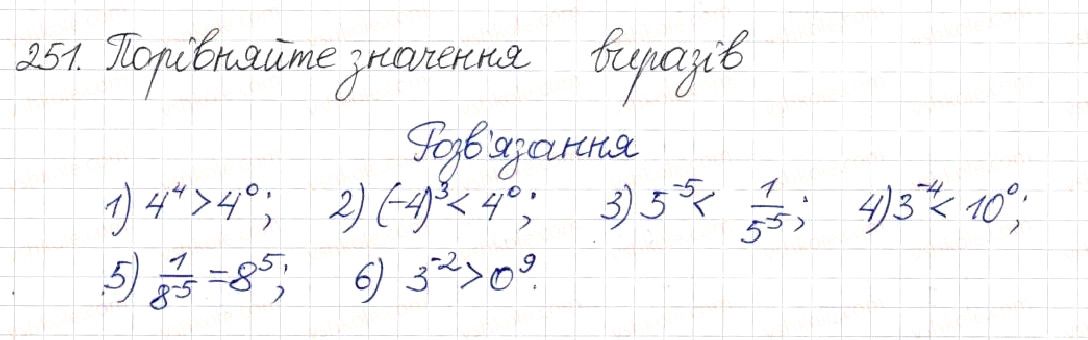 251. Порівняйте значення виразів
Розв'язання
1) 4⁴ > 4⁰; 2) (-4)³ < 4⁰; 3) 5⁻⁵ < 1/5⁻⁵; 4) 3⁻⁴ < 10⁰;
5) 1/8⁻⁵ = 8⁵; 6) 3⁻² > 0⁹.